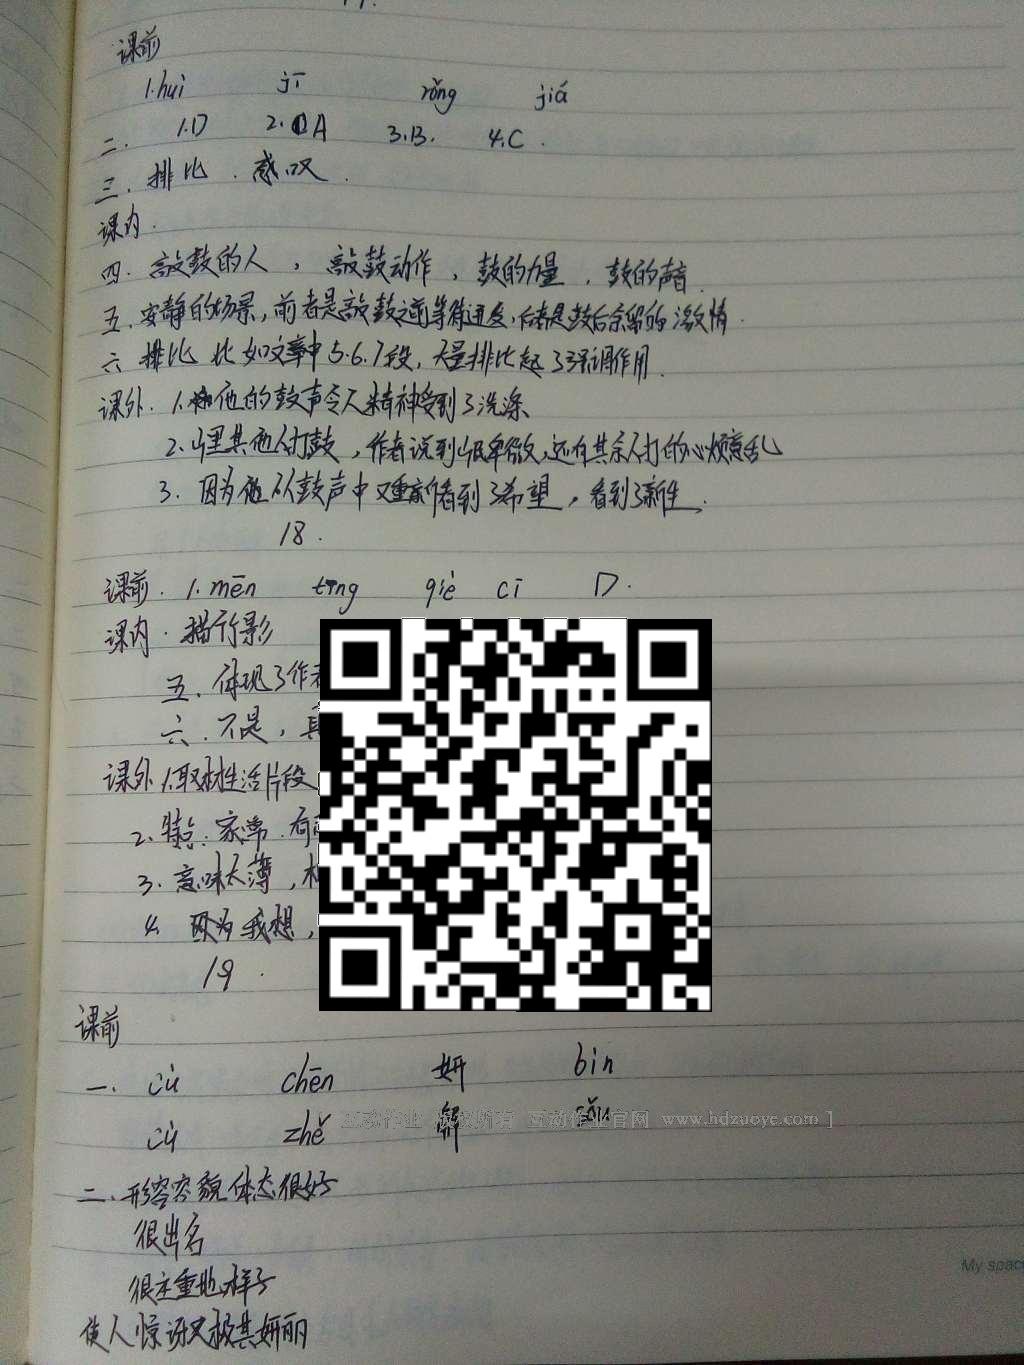 17.
课前
1.huì jī rǒng jiá
二. 1.D 2.A 3.B. 4.C.
三. 排比. 感叹.
课内.
四. 敲鼓的人, 敲鼓动作, 鼓的力量, 鼓的声音.
五. 安静的场景, 前者是敲鼓之前等待迸发, 后者是鼓后余留的激情.
六 排比 比如文章中5.6.7段, 大量排比起了强调作用.
课外. 1. 他的鼓声令人精神受到了洗涤
2. 其他人打鼓, 作者说到 卑微, 还有其余人打的心烦意乱
3. 因为他从鼓声中又重新看到了希望, 看到了新生.
18.
课前. 1. mēn tīng qiè cī D.
课内. 描竹影
五. 体现了作者
六. 不是,
课外 1.取材生活片段
2. 特点: 家常.
3. 意味太薄,
4. 因为我想,
19.
课前
一. cù chēn 妍 bìn
cù zhě sǒu
互动作业 版权所有 互动作业官网 www.hdzuoye.com ]
二. 形容容貌体态很好
很出名
很庄重地样子
使人惊讶又极其妍丽
My space